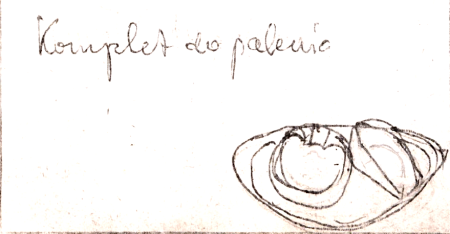 Komplet do palenia